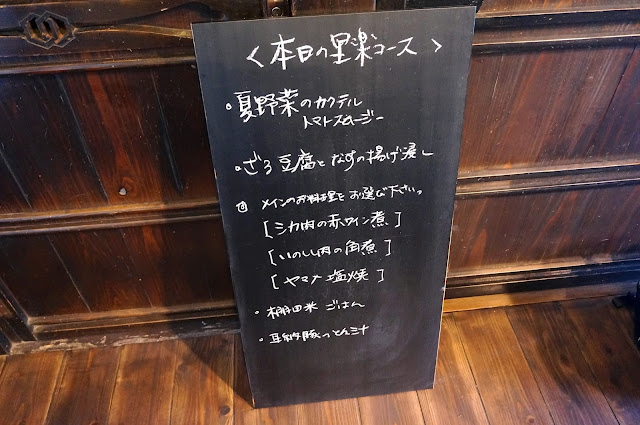 <本日の里楽コース>
。夏野菜のカクテル
トマトスムージー
。ざる豆腐となすの揚げ浸し
メインのお料理をお選び下さいっ
[シカ肉の赤ワイン煮]
[いのしし肉の角煮]
[ヤマメ塩焼]
・棚田米 ごはん
・耳納豚っとん汁